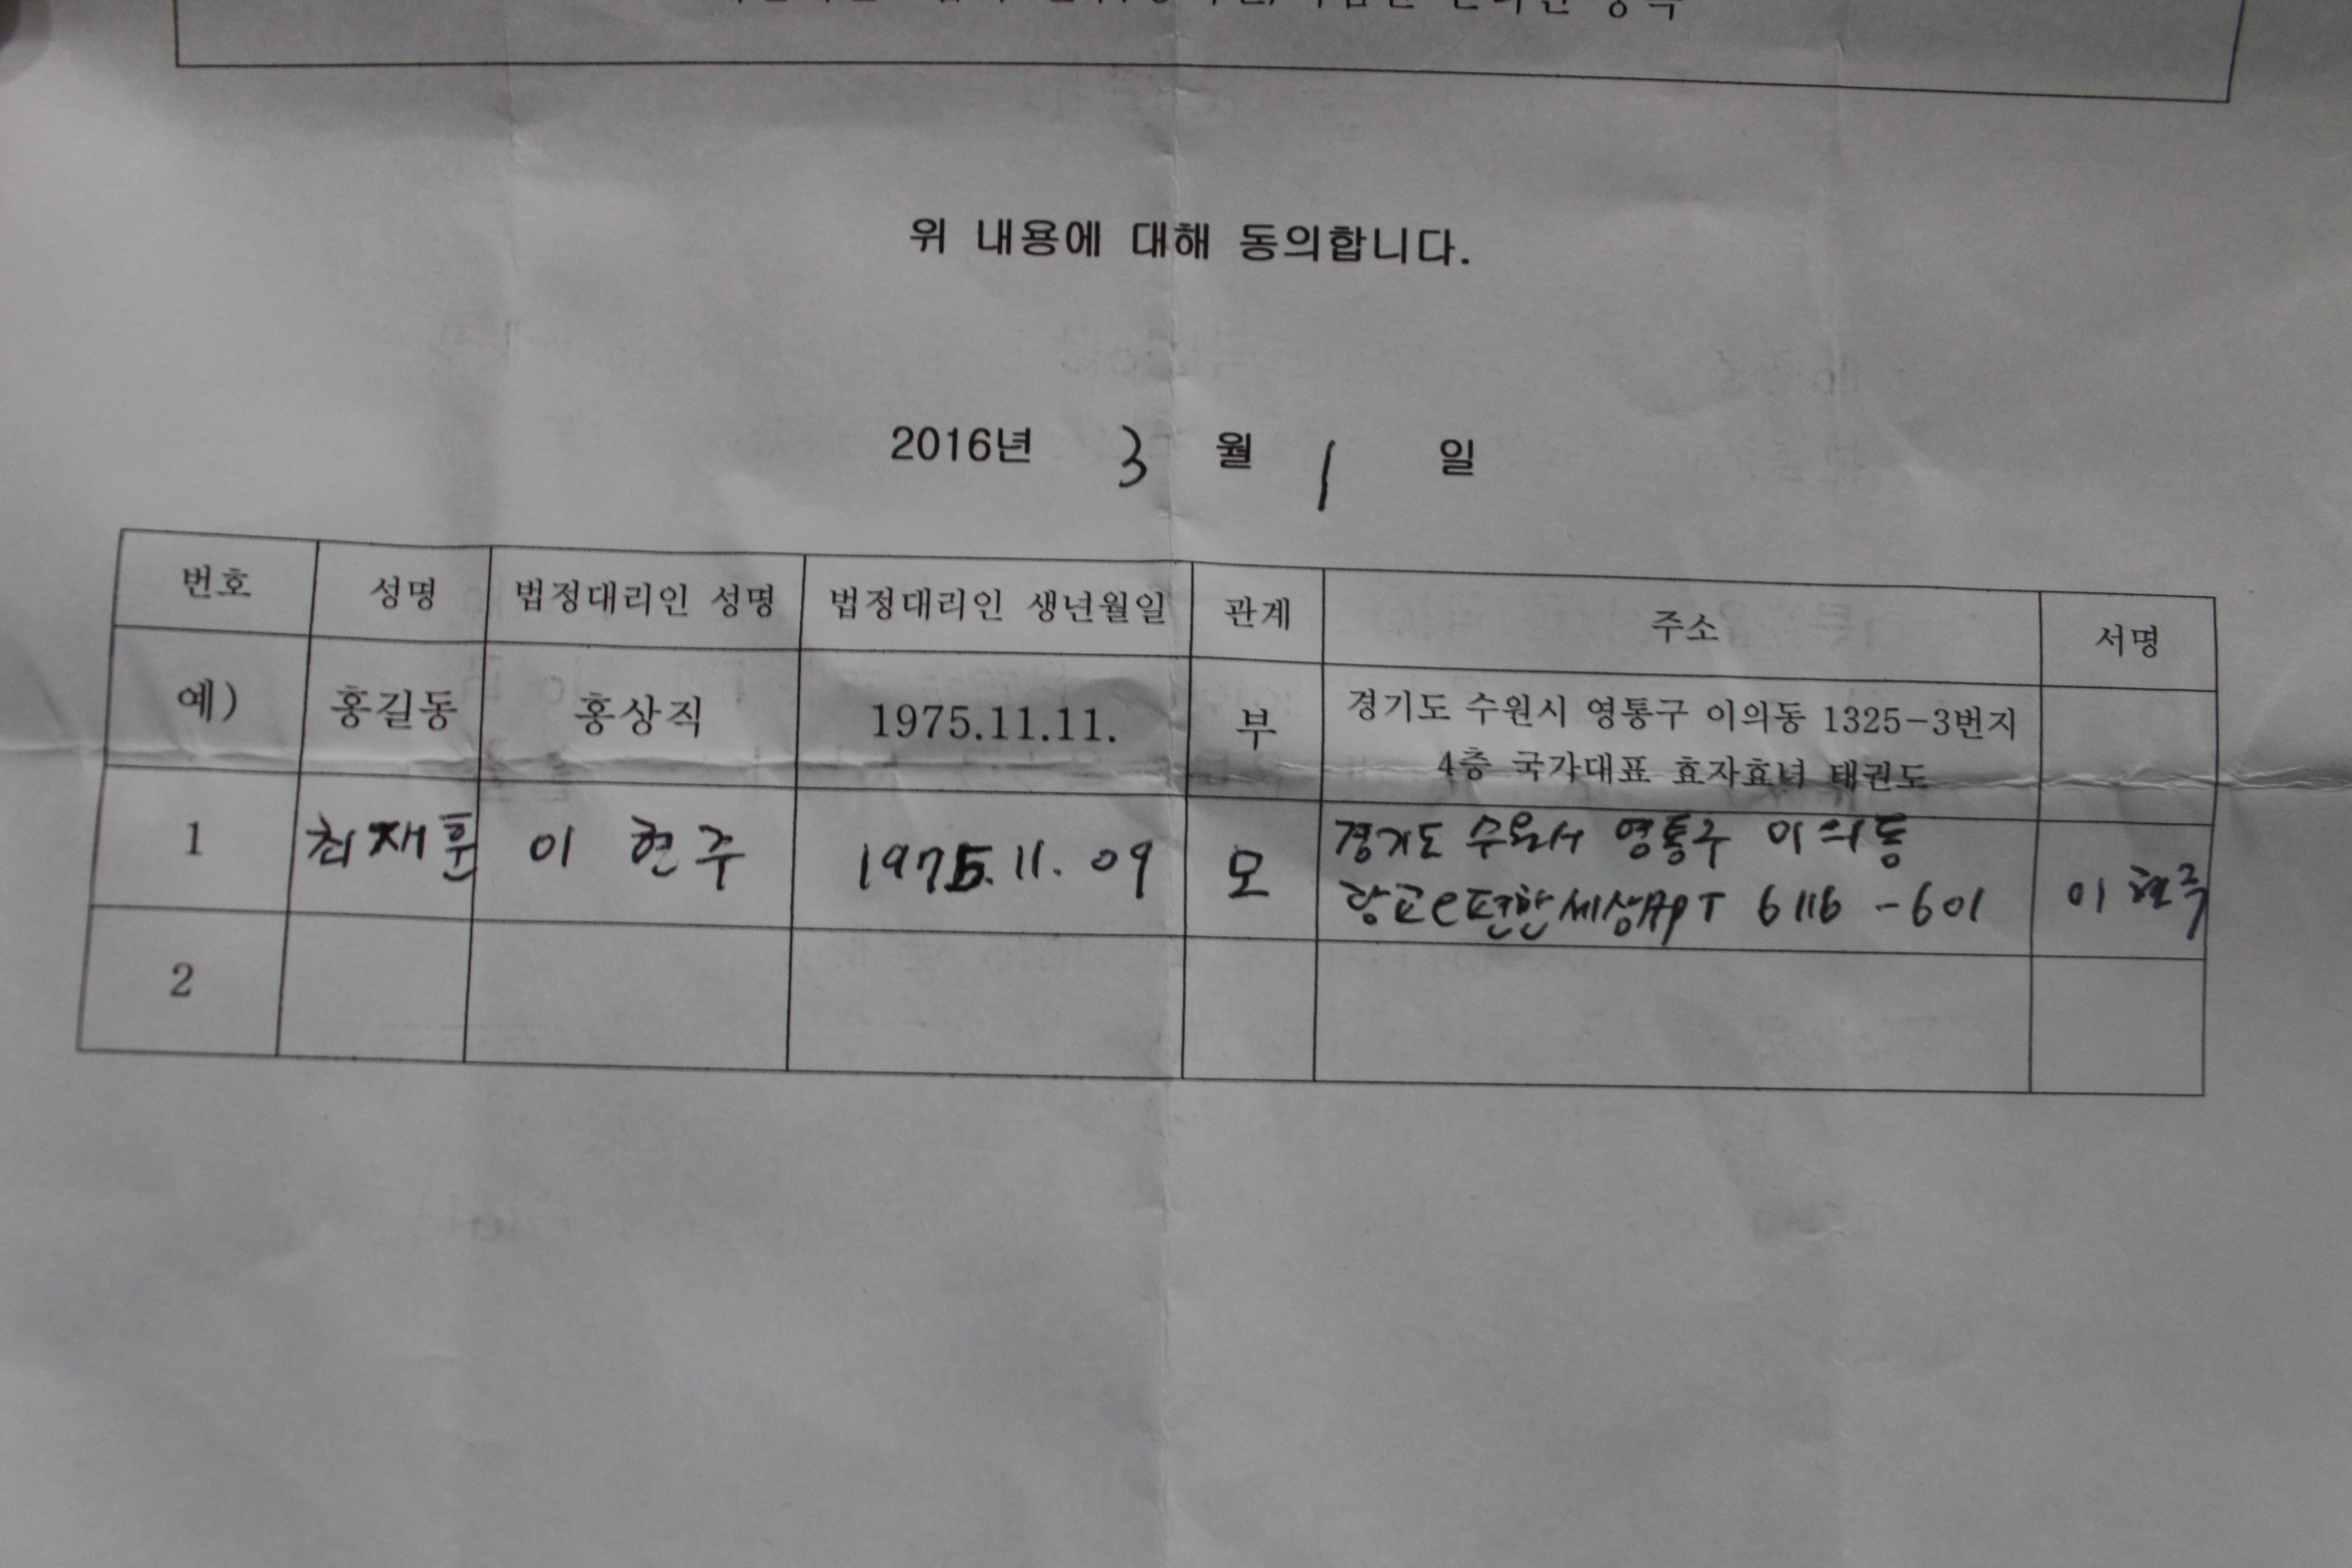 위 내용에 대해 동의합니다.
2016년 3 월 1 일
번호 성명 법정대리인 성명 법정대리인 생년월일 관계 주소 서명
예) 홍길동 홍상직 1975.11.11. 부 경기도 수원시 영통구 이의동 1325-3번지
4층 국가대표 효자효녀 태권도
1 최재훈 이 현주 1975.11.09 모 경기도 수원시 영통구 이의동
광교e편한세상APT 6116-601 이현주
2